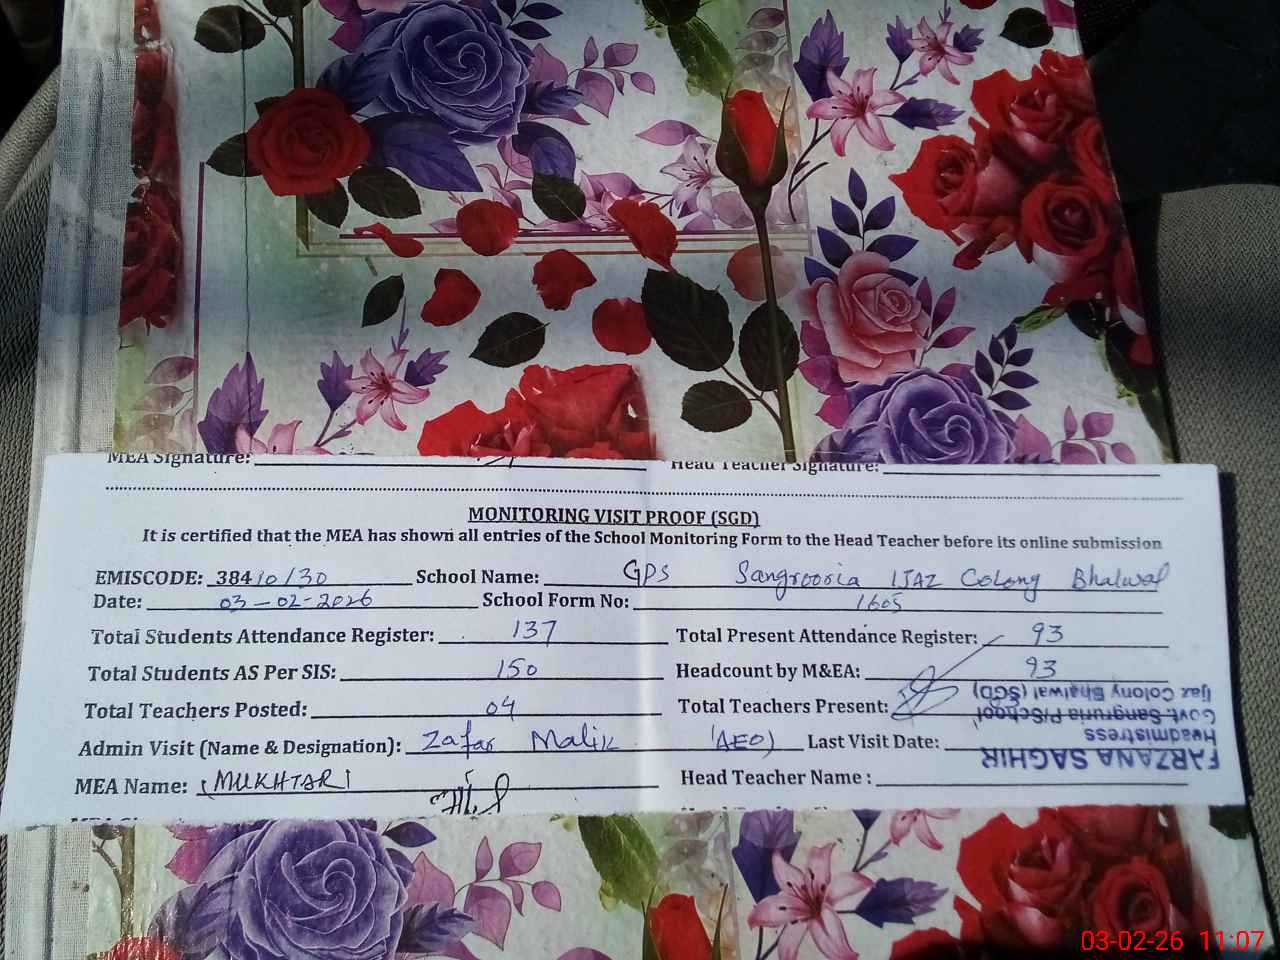 MEA Signature: Head Teacher Signature:
MONITORING VISIT PROOF (SGD)
It is certified that the MEA has shown all entries of the School Monitoring Form to the Head Teacher before its online submission
EMISCODE: 38410130 School Name: GPS Sangrooria IJAZ Colony Bhalwal
Date: 03-02-2026 School Form No: 1605
Total Students Attendance Register: 137 Total Present Attendance Register: 93
Total Students AS Per SIS: 150 Headcount by M&EA: 93
Total Teachers Posted: 04 Total Teachers Present:
Admin Visit (Name & Designation): Zafar Malik (AEO) Last Visit Date:
MEA Name: MUKHTAR Head Teacher Name :
FARZANA SAGHIR
Headmistress
Govt. Sangruria P/School
Ijaz Colony Bhalwal (SGD)
03-02-26 11:07